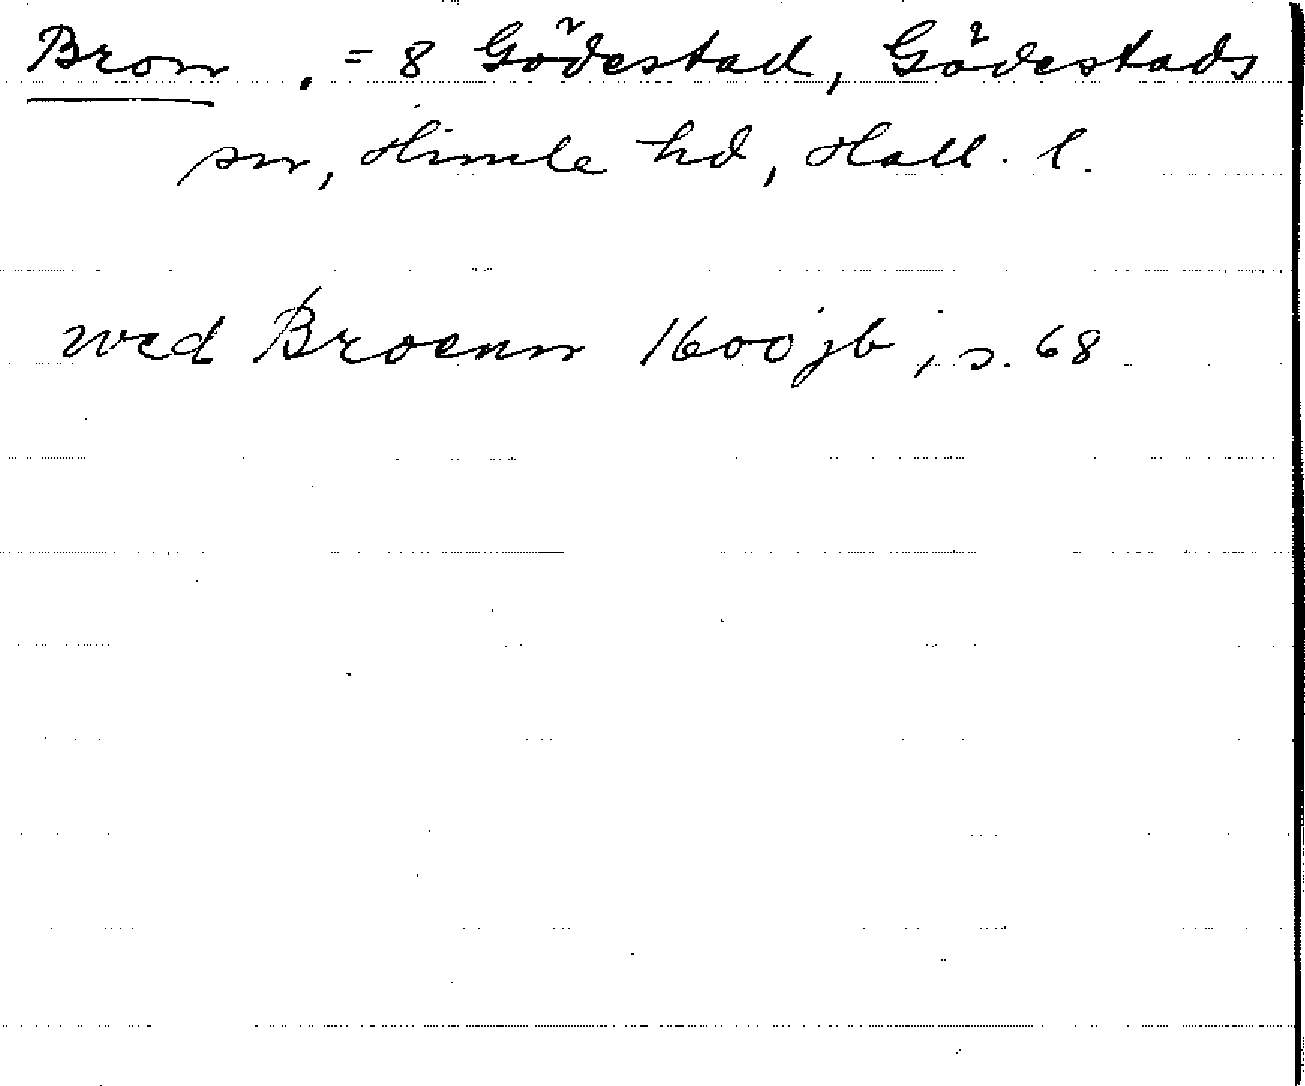 Bron . = 8 Gödestad, Gödestads
sn, Himle hd, Hall. l.
wed Broenn 1600 jb, s. 68